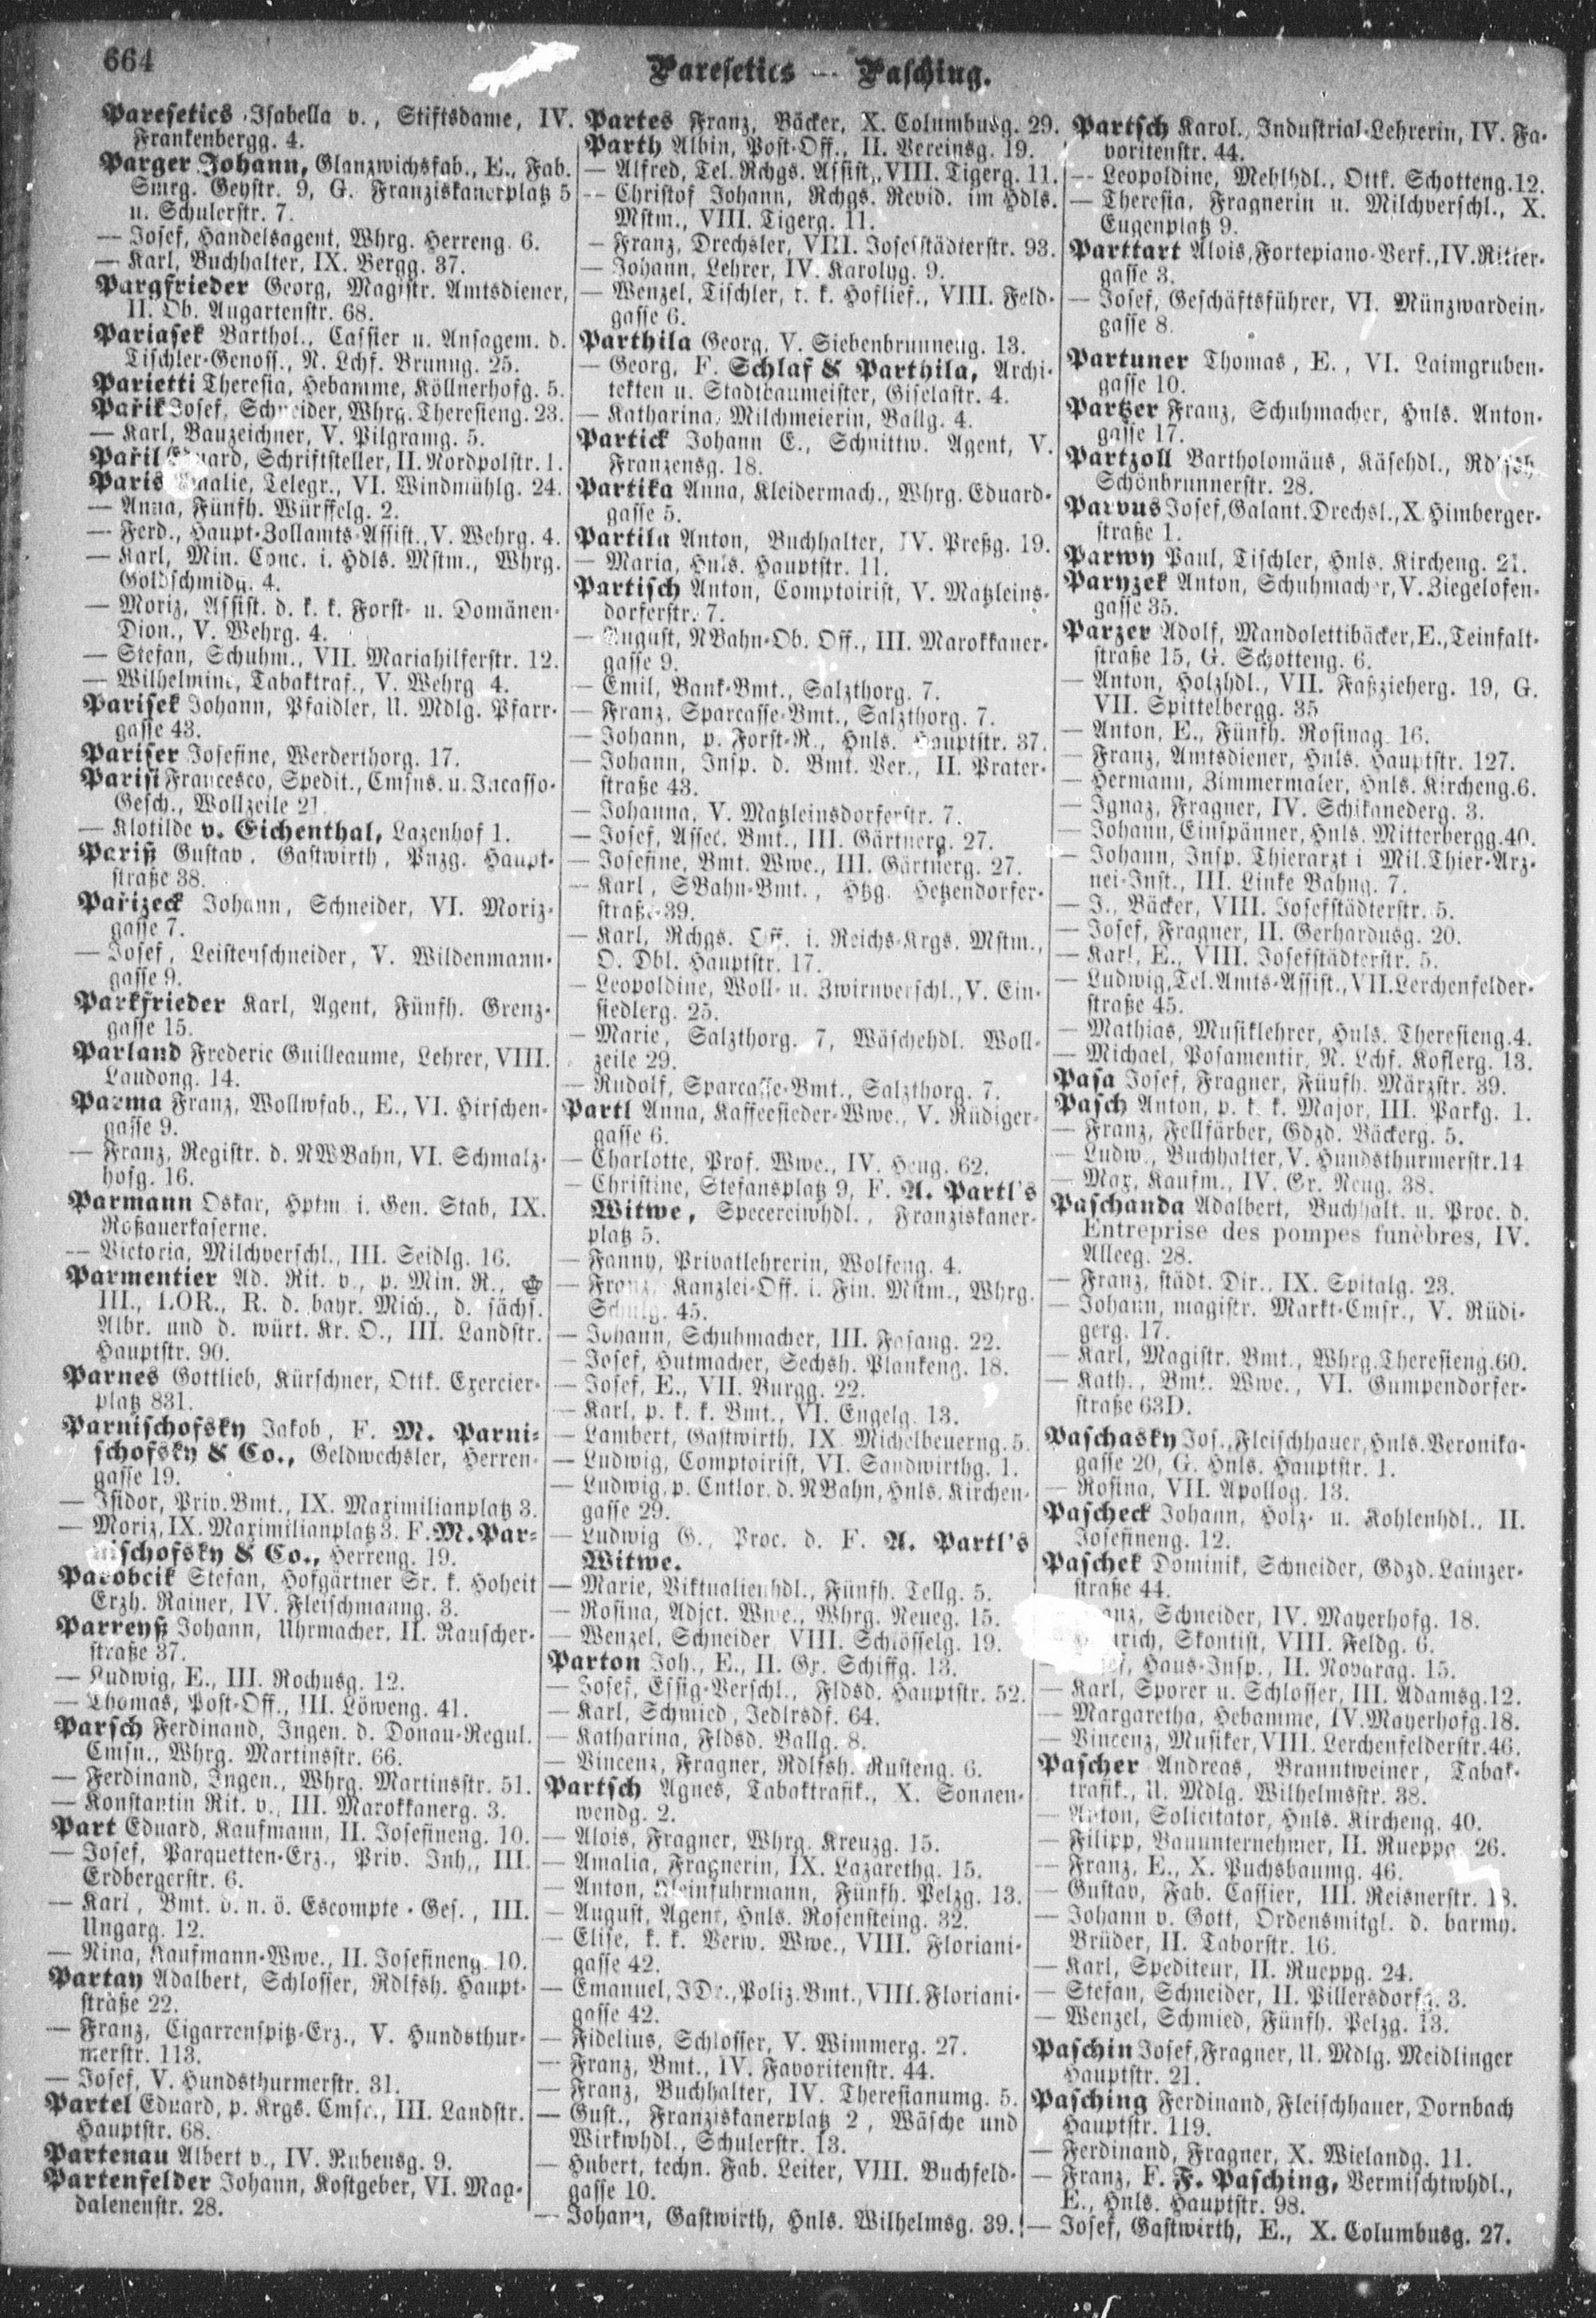 664
Paresetics — Pasching.
Paresetics Isabella v., Stiftsdame, IV.
Frankenbergg. 4.
Parger Johann, Glanzwichsfab., E., Fab.
Smrg. Geystr. 9, G. Franziskanerplatz 5
u. Schulerstr. 7.
— Josef, Handelsagent, Whrg. Herreng. 6.
— Karl, Buchhalter, IX. Bergg. 37.
Pargfrieder Georg, Magistr. Amtsdiener,
II. Ob. Augartenstr. 68.
Pariasek Barthol., Cassier u. Ansagem. d.
Tischler-Genoss., N. Lchf. Brunng. 25.
Parietti Theresia, Hebamme, Köllnerhofg. 5.
Pařik Josef, Schneider, Whrg. Theresieng. 23.
— Karl, Bauzeichner, V. Pilgramg. 5.
Pařil Eduard, Schriftsteller, II. Nordpolstr. 1.
Paris Amalie, Telegr., VI. Windmühlg. 24.
— Anna, Fünfh. Würffelg. 2.
— Ferd., Haupt-Zollamts-Assist., V. Wehrg. 4.
— Karl, Min. Conc. i. Hdls. Mstm., Whrg.
Goldschmidg. 4.
— Moriz, Assist. d. k. k. Forst- u. Domänen-
Dion., V. Wehrg. 4.
— Stefan, Schuhm., VII. Mariahilferstr. 12.
— Wilhelmine, Tabaktraf., V. Wehrg 4.
Parisek Johann, Pfaidler, U. Mdlg. Pfarr-
gasse 43.
Pariser Josefine, Werderthorg. 17.
Parisi Francesco, Spedit., Cmsns. u. Incasso-
Gesch., Wollzeile 21.
— Klotilde v. Eichenthal, Lazenhof 1.
Pariß Gustav, Gastwirth, Pnzg. Haupt-
straße 38.
Pařizeck Johann, Schneider, VI. Moriz-
gasse 7.
— Josef, Leistenschneider, V. Wildenmann-
gasse 9.
Parkfrieder Karl, Agent, Fünfh. Grenz-
gasse 15.
Parland Frederic Guilleaume, Lehrer, VIII.
Laudong. 14.
Parma Franz, Wollwfab., E., VI. Hirschen-
gasse 9.
— Franz, Registr. d. NWBahn, VI. Schmalz-
hofg. 16.
Parmann Oskar, Hptm i. Gen. Stab, IX.
Roßauerkaserne.
— Victoria, Milchverschl., III. Seidlg. 16.
Parmentier Ad. Rit. v., p. Min. R.,
III., LOR., R. d. bayr. Mich., d. sächs.
Albr. und d. würt. Kr. O., III. Landstr.
Hauptstr. 90.
Parnes Gottlieb, Kürschner, Ottk. Exercier-
platz 831.
Parnischofsky Jakob, F. M. Parni-
schofsky & Co., Geldwechsler, Herren-
gasse 19.
— Isidor, Priv. Bmt., IX. Maximilianplatz 3.
— Moriz, IX. Maximilianplatz 3. F. M. Par-
nischofsky & Co., Herreng. 19.
Parobcik Stefan, Hofgärtner Sr. k. Hoheit
Erzh. Rainer, IV. Fleischmanng. 3.
Parreyß Johann, Uhrmacher, II. Rauscher-
straße 37.
— Ludwig, E., III. Rochusg. 12.
— Thomas, Post-Off., III. Löweng. 41.
Parsch Ferdinand, Ingen. d. Donau-Regul.
Cmsn., Whrg. Martinsstr. 66.
— Ferdinand, Ingen., Whrg. Martinsstr. 51.
— Konstantin Rit. v., III. Marokkanerg. 3.
Part Eduard, Kaufmann, II. Josefineng. 10.
— Josef, Parquetten-Erz., Priv. Inh., III.
Erdbergerstr. 6.
— Karl, Bmt. d. n. ö. Escompte-Ges., III.
Ungarg. 12.
— Nina, Kaufmann-Wwe., II. Josefineng. 10.
Partay Adalbert, Schlosser, Rdlfsh. Haupt-
straße 22.
— Franz, Cigarrenspitz-Erz., V. Hundsthur-
merstr. 113.
— Josef, V. Hundsthurmerstr. 31.
Partel Eduard, p. Krgs. Cmsr., III. Landstr.
Hauptstr. 68.
Partenau Albert v., IV. Rubensg. 9.
Partenfelder Johann, Kostgeber, VI. Mag-
dalenenstr. 28.
Partes Franz, Bäcker, X. Columbusg. 29.
Parth Albin, Post-Off., II. Vereinsg. 19.
— Alfred, Tel. Rchgs. Assist., VIII. Tigerg. 11.
— Christof Johann, Rchgs. Revid. im Hdls.
Mstm., VIII. Tigerg. 11.
— Franz, Drechsler, VIII. Josefstädterstr. 93.
— Johann, Lehrer, IV. Karolyg. 9.
— Wenzel, Tischler, k. k. Hoflief., VIII. Feld-
gasse 6.
Parthila Georg, V. Siebenbrunneng. 13.
— Georg, F. Schlaf & Parthila, Archi-
tekten u. Stadtbaumeister, Giselastr. 4.
— Katharina, Milchmeierin, Ballg. 4.
Partick Johann E., Schnittw. Agent, V.
Franzensg. 18.
Partika Anna, Kleidermach., Whrg. Eduard-
gasse 5.
Partila Anton, Buchhalter, IV. Preßg. 19.
— Maria, Hnls. Hauptstr. 11.
Partisch Anton, Comptoirist, V. Matzleins-
dorferstr. 7.
— August, NBahn-Ob. Off., III. Marokkaner-
gasse 9.
— Emil, Bank-Bmt., Salzthorg. 7.
— Franz, Sparcasse-Bmt., Salzthorg. 7.
— Johann, p. Forst-R., Hnls. Hauptstr. 37.
— Johann, Insp. d. Bmt. Ver., II. Prater-
straße 43.
— Johanna, V. Matzleinsdorferstr. 7.
— Josef, Assec. Bmt., III. Gärtnerg. 27.
— Josefine, Bmt. Wwe., III. Gärtnerg. 27.
— Karl, SBahn-Bmt., Htzg. Hetzendorfer-
straße 39.
— Karl, Rchgs. Off. i. Reichs-Krgs. Mstm.,
O. Dbl. Hauptstr. 17.
— Leopoldine, Woll- u. Zwirnverschl., V. Ein-
siedlerg. 25.
— Marie, Salzthorg. 7, Wäschehdl. Woll-
zeile 29.
— Rudolf, Sparcasse-Bmt., Salzthorg. 7.
Partl Anna, Kaffeesieder-Wwe., V. Rüdiger-
gasse 6.
— Charlotte, Prof. Wwe., IV. Heug. 62.
— Christine, Stefansplatz 9, F. A. Partl's
Witwe, Specereiwhdl., Franziskaner-
platz 5.
— Fanny, Privatlehrerin, Wolfeng. 4.
— Franz, Kanzlei-Off. i. Fin. Mstm., Whrg.
Schulg. 45.
— Johann, Schuhmacher, III. Fasang. 22.
— Josef, Hutmacher, Sechsh. Plankeng. 18.
— Josef, E., VII. Burgg. 22.
— Karl, p. k. k. Bmt., VI. Engelg. 13.
— Lambert, Gastwirth, IX Michelbeuerng. 5.
— Ludwig, Comptoirist, VI. Sandwirthg. 1.
— Ludwig, p. Cntlor. d. NBahn, Hnls. Kirchen-
gasse 29.
— Ludwig G., Proc. d. F. A. Partl's
Witwe.
— Marie, Viktualienhdl., Fünfh. Tellg. 5.
— Rosina, Adjct. Wwe., Whrg. Neueg. 15.
— Wenzel, Schneider VIII. Schlösselg. 19.
Parton Joh., E., II. Gr. Schiffg. 13.
— Josef, Essig-Verschl., Fldsd. Hauptstr. 52.
— Karl, Schmied, Jedlrsdf. 64.
— Katharina, Fldsd. Ballg. 8.
— Vincenz, Fragner, Rdlfsh. Rusteng. 6.
Partsch Agnes, Tabaktrafik., X. Sonnen-
wendg. 2.
— Alois, Fragner, Whrg. Kreuzg. 15.
— Amalia, Fragnerin, IX. Lazarethg. 15.
— Anton, Kleinfuhrmann, Fünfh. Pelzg. 13.
— August, Agent, Hnls. Rosensteing. 32.
— Elise, k. k. Verw. Wwe., VIII. Floriani-
gasse 42.
— Emanuel, JDr., Poliz. Bmt., VIII. Floriani-
gasse 42.
— Fidelius, Schlosser, V. Wimmerg. 27.
— Franz, Bmt., IV. Favoritenstr. 44.
— Franz, Buchhalter, IV. Theresianumg. 5.
— Gust., Franziskanerplatz 2, Wäsche und
Wirkwhdl., Schulerstr. 13.
— Hubert, techn. Fab. Leiter, VIII. Buchfeld-
gasse 10.
— Johann, Gastwirth, Hnls. Wilhelmsg. 39.
Partsch Karol., Industrial-Lehrerin, IV. Fa-
voritenstr. 44.
— Leopoldine, Mehlhdl., Ottk. Schotteng. 12.
— Theresia, Fragnerin u. Milchverschl., X.
Eugenplatz 9.
Parttart Alois, Fortepiano-Verf., IV. Ritter-
gasse 3.
— Josef, Geschäftsführer, VI. Münzwardein-
gasse 8.
Partuner Thomas, E., VI. Laimgruben-
gasse 10.
Partzer Franz, Schuhmacher, Hnls. Anton-
gasse 17.
Partzoll Bartholomäus, Käsehdl., Rdlfsh
Schönbrunnerstr. 28.
Parvus Josef, Galant. Drechsl., X. Himberger-
straße 1.
Parwy Paul, Tischler, Hnls. Kircheng. 21.
Paryzek Anton, Schuhmacher, V. Ziegelofen-
gasse 35.
Parzer Adolf, Mandolettibäcker, E., Teinfalt-
straße 15, G. Schotteng. 6.
— Anton, Holzhdl., VII. Faßzieherg. 19, G.
VII. Spittelbergg. 35
— Anton, E., Fünfh. Rosinag. 16.
— Franz, Amtsdiener, Hnls. Hauptstr. 127.
— Hermann, Zimmermaler, Hnls. Kircheng. 6.
— Ignaz, Fragner, IV. Schikanederg. 3.
— Johann, Einspänner, Hnls. Mitterbergg. 40.
— Johann, Insp. Thierarzt i Mil. Thier-Arz-
nei-Inst., III. Linke Bahng. 7.
— J., Bäcker, VIII. Josefstädterstr. 5.
— Josef, Fragner, II. Gerhardusg. 20.
— Karl, E., VIII. Josefstädterstr. 5.
— Ludwig, Tel. Amts-Assist., VII. Lerchenfelder-
straße 45.
— Mathias, Musiklehrer, Hnls. Theresieng. 4.
— Michael, Posamentir, N. Lchf. Koflerg. 13.
Pasa Josef, Fragner, Fünfh. Märzstr. 39.
Pasch Anton, p. k. k. Major, III. Parkg. 1.
— Franz, Fellfärber, Gdzd. Bäckerg. 5.
— Ludw., Buchhalter, V. Hundsthurmerstr. 14
— Max, Kaufm., IV. Gr. Neug. 38.
Paschanda Adalbert, Buchhalt. u. Proc. d.
Entreprise des pompes funèbres, IV.
Alleeg. 28.
— Franz, städt. Dir., IX. Spitalg. 23.
— Johann, magistr. Markt-Cmsr., V. Rüdi-
gerg. 17.
— Karl, Magistr. Bmt., Whrg. Theresieng. 60.
— Kath., Bmt. Wwe., VI. Gumpendorfer-
straße 63D.
Paschasky Jos., Fleischhauer, Hnls. Veronika-
gasse 20, G. Hnls. Hauptstr. 1.
— Rosina, VII. Apollog. 13.
Pascheck Johann, Holz- u. Kohlenhdl., II.
Josefineng. 12.
Paschek Dominik, Schneider, Gdzd. Lainzer-
straße 44.
Schneider, IV. Mayerhofg. 18.
Skontist, VIII. Feldg. 6.
Haus-Insp., II. Novarag. 15.
— Karl, Sporer u. Schlosser, III. Adamsg. 12.
— Margaretha, Hebamme, IV. Mayerhofg. 18.
— Vincenz, Musiker, VIII. Lerchenfelderstr. 46.
Pascher Andreas, Branntweiner, Tabak-
trafik., U. Mdlg. Wilhelmsstr. 38.
— Anton, Solicitator, Hnls. Kircheng. 40.
— Filipp, Bauunternehmer, II. Rueppg. 26.
— Franz, E., X. Puchsbaumg. 46.
— Gustav, Fab. Cassier, III. Reisnerstr. 13.
— Johann v. Gott, Ordensmitgl. d. barmh.
Brüder, II. Taborstr. 16.
— Karl, Spediteur, II. Rueppg. 24.
— Stefan, Schneider, II. Pillersdorfg. 3.
— Wenzel, Schmied, Fünfh. Pelzg. 13.
Paschin Josef, Fragner, U. Mdlg. Meidlinger
Hauptstr. 21.
Pasching Ferdinand, Fleischhauer, Dornbach
Hauptstr. 119.
— Ferdinand, Fragner, X. Wielandg. 11.
— Franz, F. F. Pasching, Vermischtwhdl.,
E., Hnls. Hauptstr. 98.
— Josef, Gastwirth, E., X. Columbusg. 27.